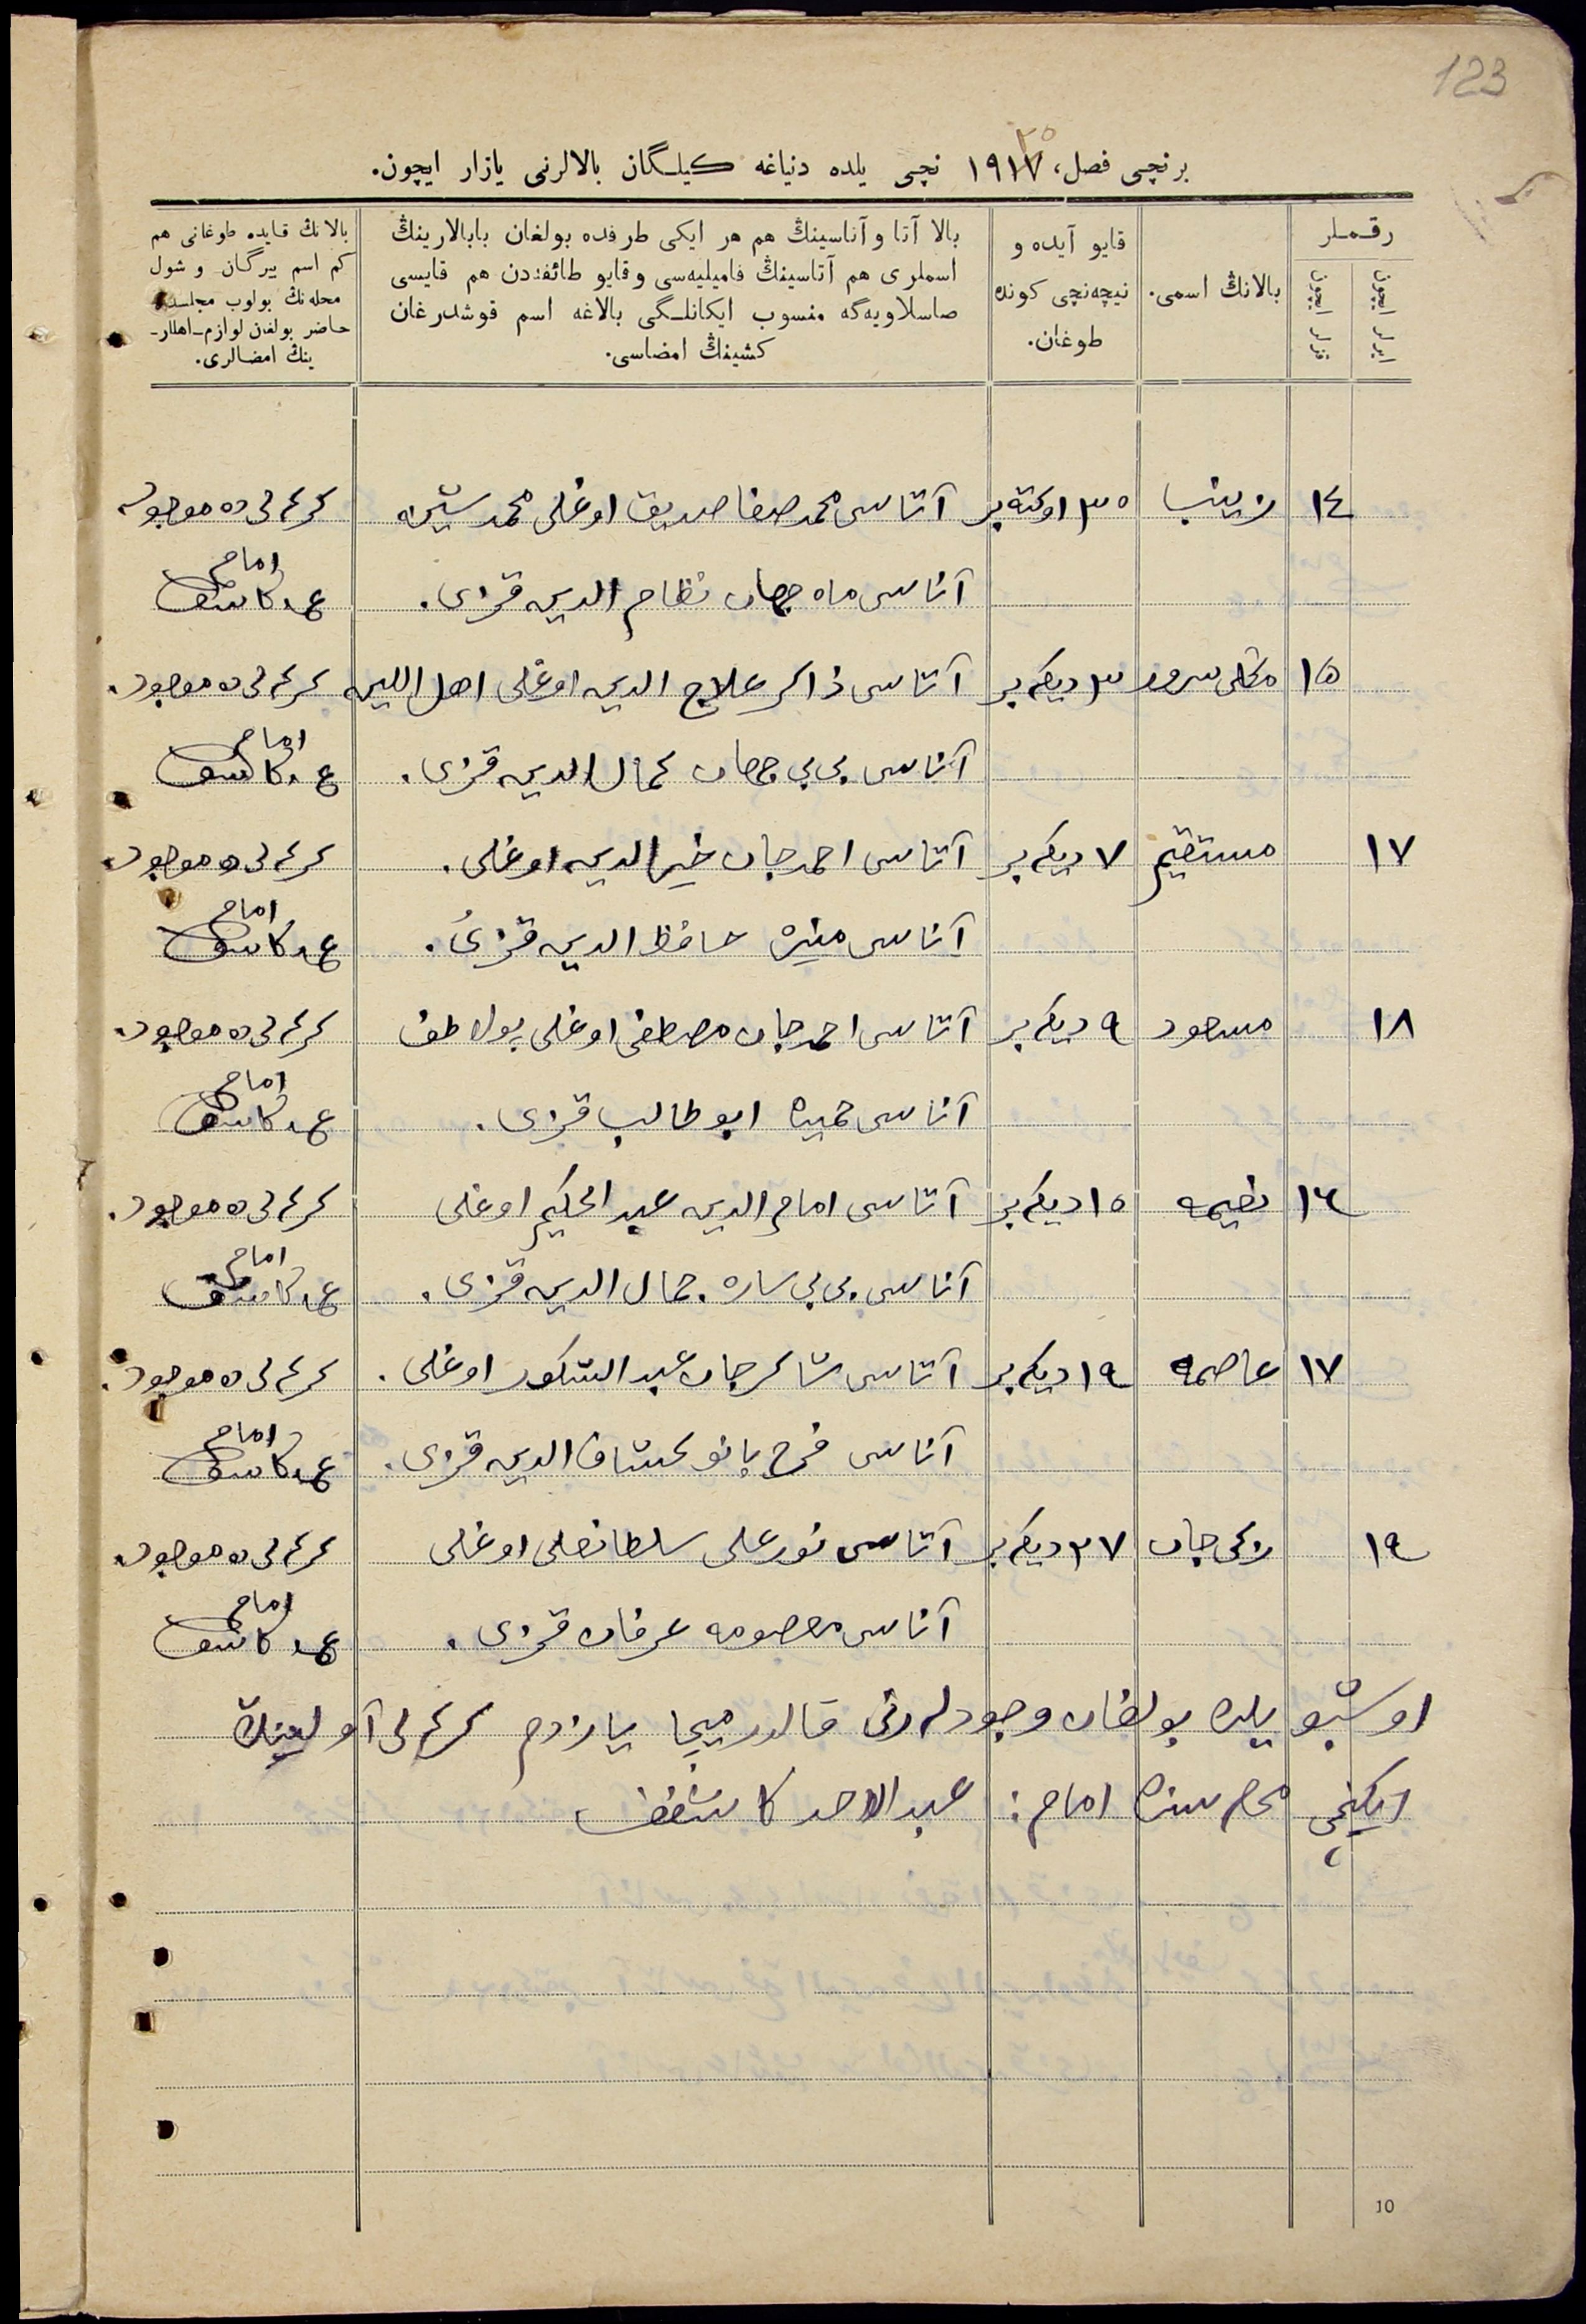 123
٢٥
برنچی فصل، ١٩١٧ نچی یلده دنیاغه کیلگان بالالرنی یازار ایچون.
رقملر
ایرلر ایچون
قزلر ایچون
بالانڭ اسمی.
قایو آیده و نیچه‌نچی کونده طوغان.
بالا آتا و آناسینڭ هم هر ایکی طرفده بولغان بابالارینڭ
اسملری هم آتاسینڭ فامیلیه‌سی و قایو طائفه‌دن هم قایسی
صاسلاویه‌گه منسوب ایکانلگی بالاغه اسم قوشدرغان
کشینڭ امضاسی.
بالانڭ قایده طوغانی هم
کم اسم بیرگان و شول
محله‌نڭ بولوب مجلسده
حاضر بولغان لوازم-اهللر-
ینڭ امضالری.
١٤ زینب ٣٥ اوکتەبر آتاسی محمدصفا صدیق اوغلی محمدشین ده موجود
آناسی ماه جهان نظام الدین قزی. امام ع. کاشف
١٥ سرور ٣ دیکەبر آتاسی ذاکر علاج الدین اوغلی ده موجود.
آناسی بی بی جهان کمال الدین قزی. امام ع. کاشف
١٧ مستقیم ٧ دیکەبر آتاسی احمدجان خیرالدین اوغلی. ده موجود
آناسی منیره حافظ الدین قزی. امام ع. کاشف
١٨ مسعود ٩ دیکەبر آتاسی احمدجان مصطفی اوغلی ده موجود.
آناسی حمیده ابو طالب قزی. امام ع. کاشف
١٦ نعیمه ١٥ دیکەبر آتاسی امام الدین عبد الحکیم اوغلی ده موجود.
آناسی بی بی ساره جمال الدین قزی. امام ع. کاشف
١٧ عاصمه ١٩ دیکەبر آتاسی شاکرجان عبد الشکور اوغلی. ده موجود.
آناسی فرح بانو کشاف الدین قزی. امام ع. کاشف
١٩ جان ٢٧ دیکەبر آتاسی نورعلی سلطانعلی اوغلی ده موجود.
آناسی معصومه عرفان قزی. امام ع. کاشف
اوشبو یلده بولغان وجودلەرنی قالدرمیچا یازدم
ایکنچی امام: عبد الاحد کاشف
10